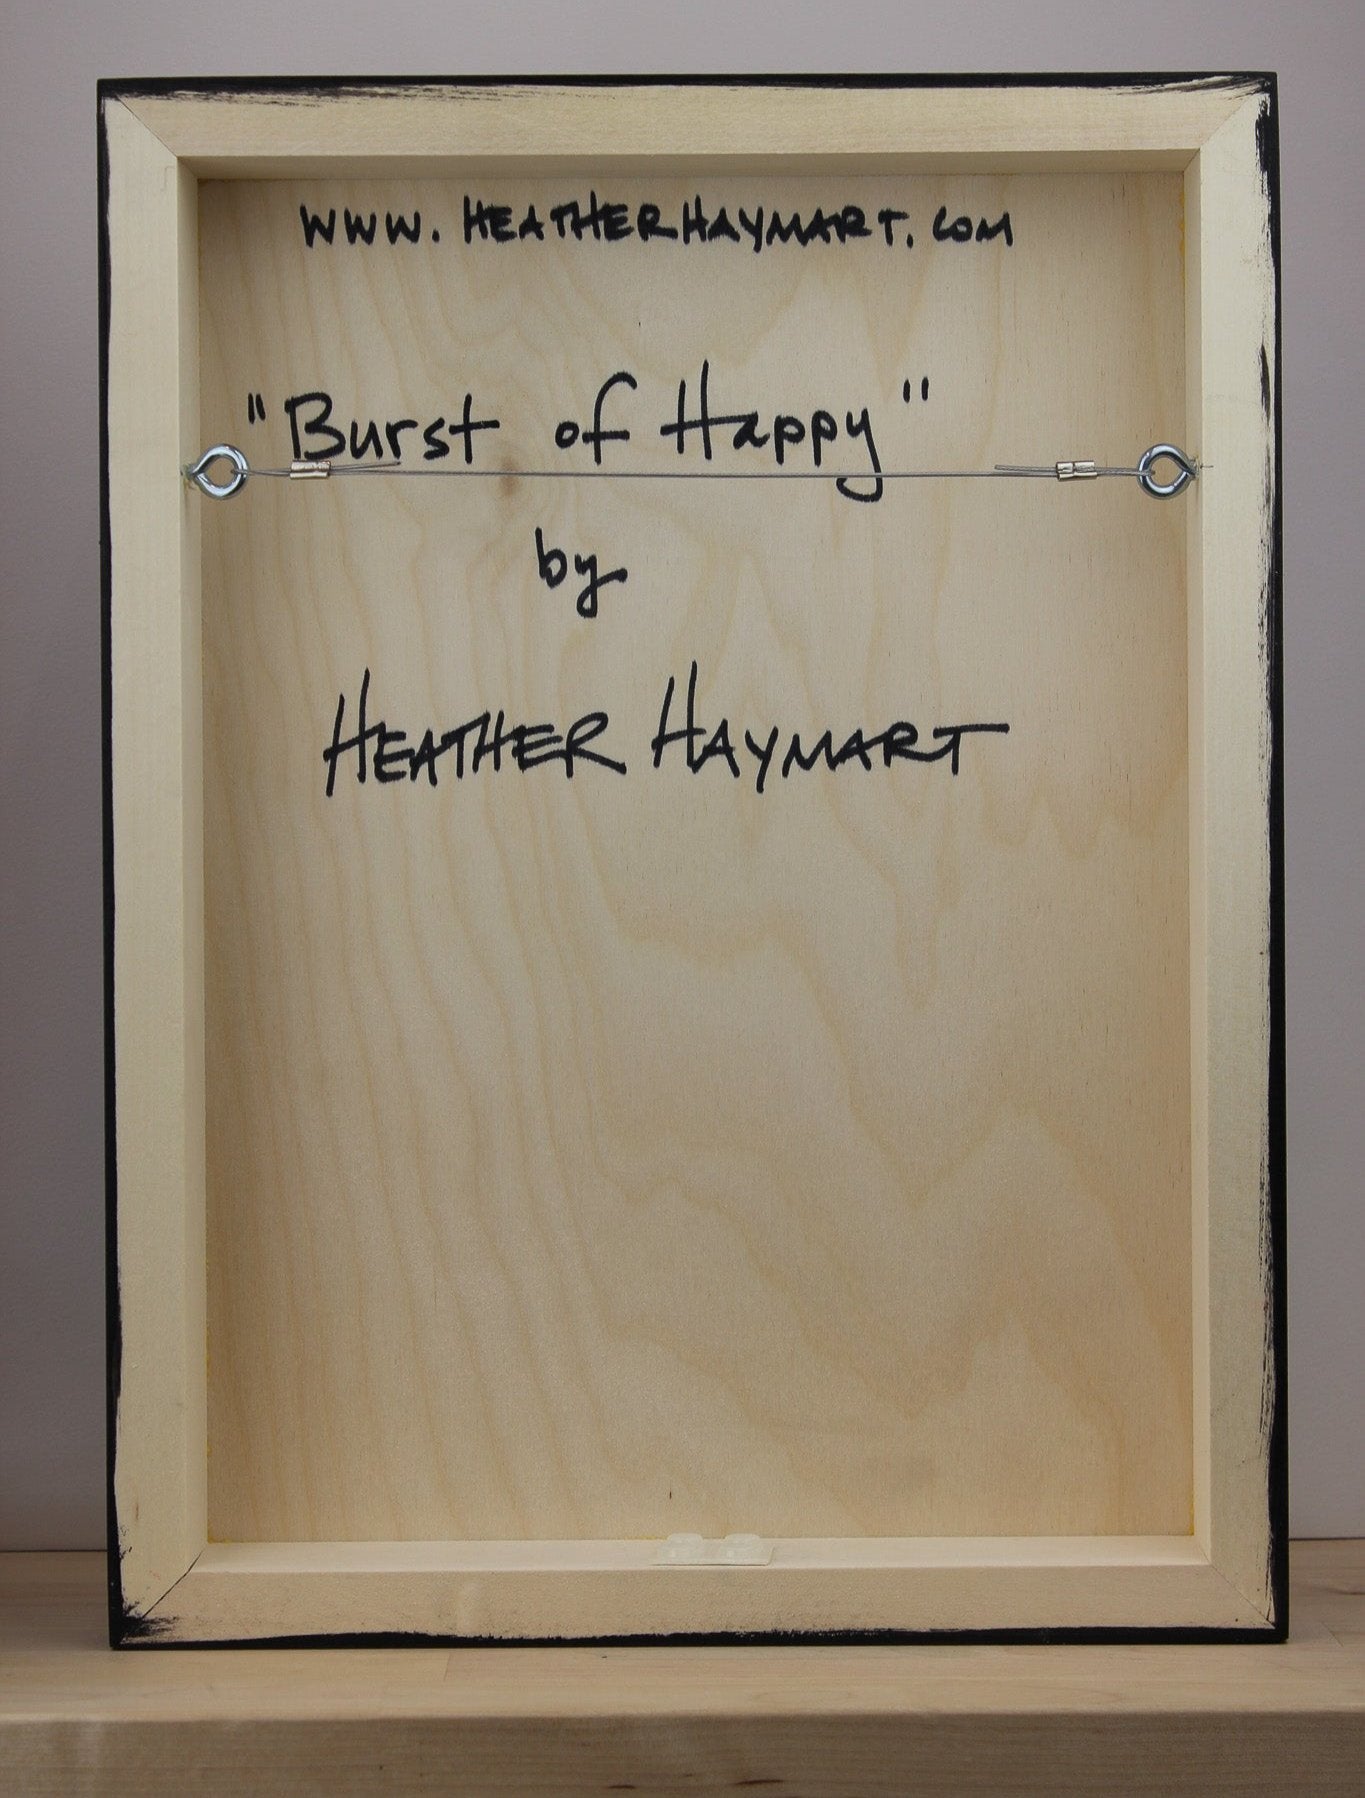 WWW.HEATHERHAYMART.COM
"Burst of Happy"
by
HEATHER HAYMART